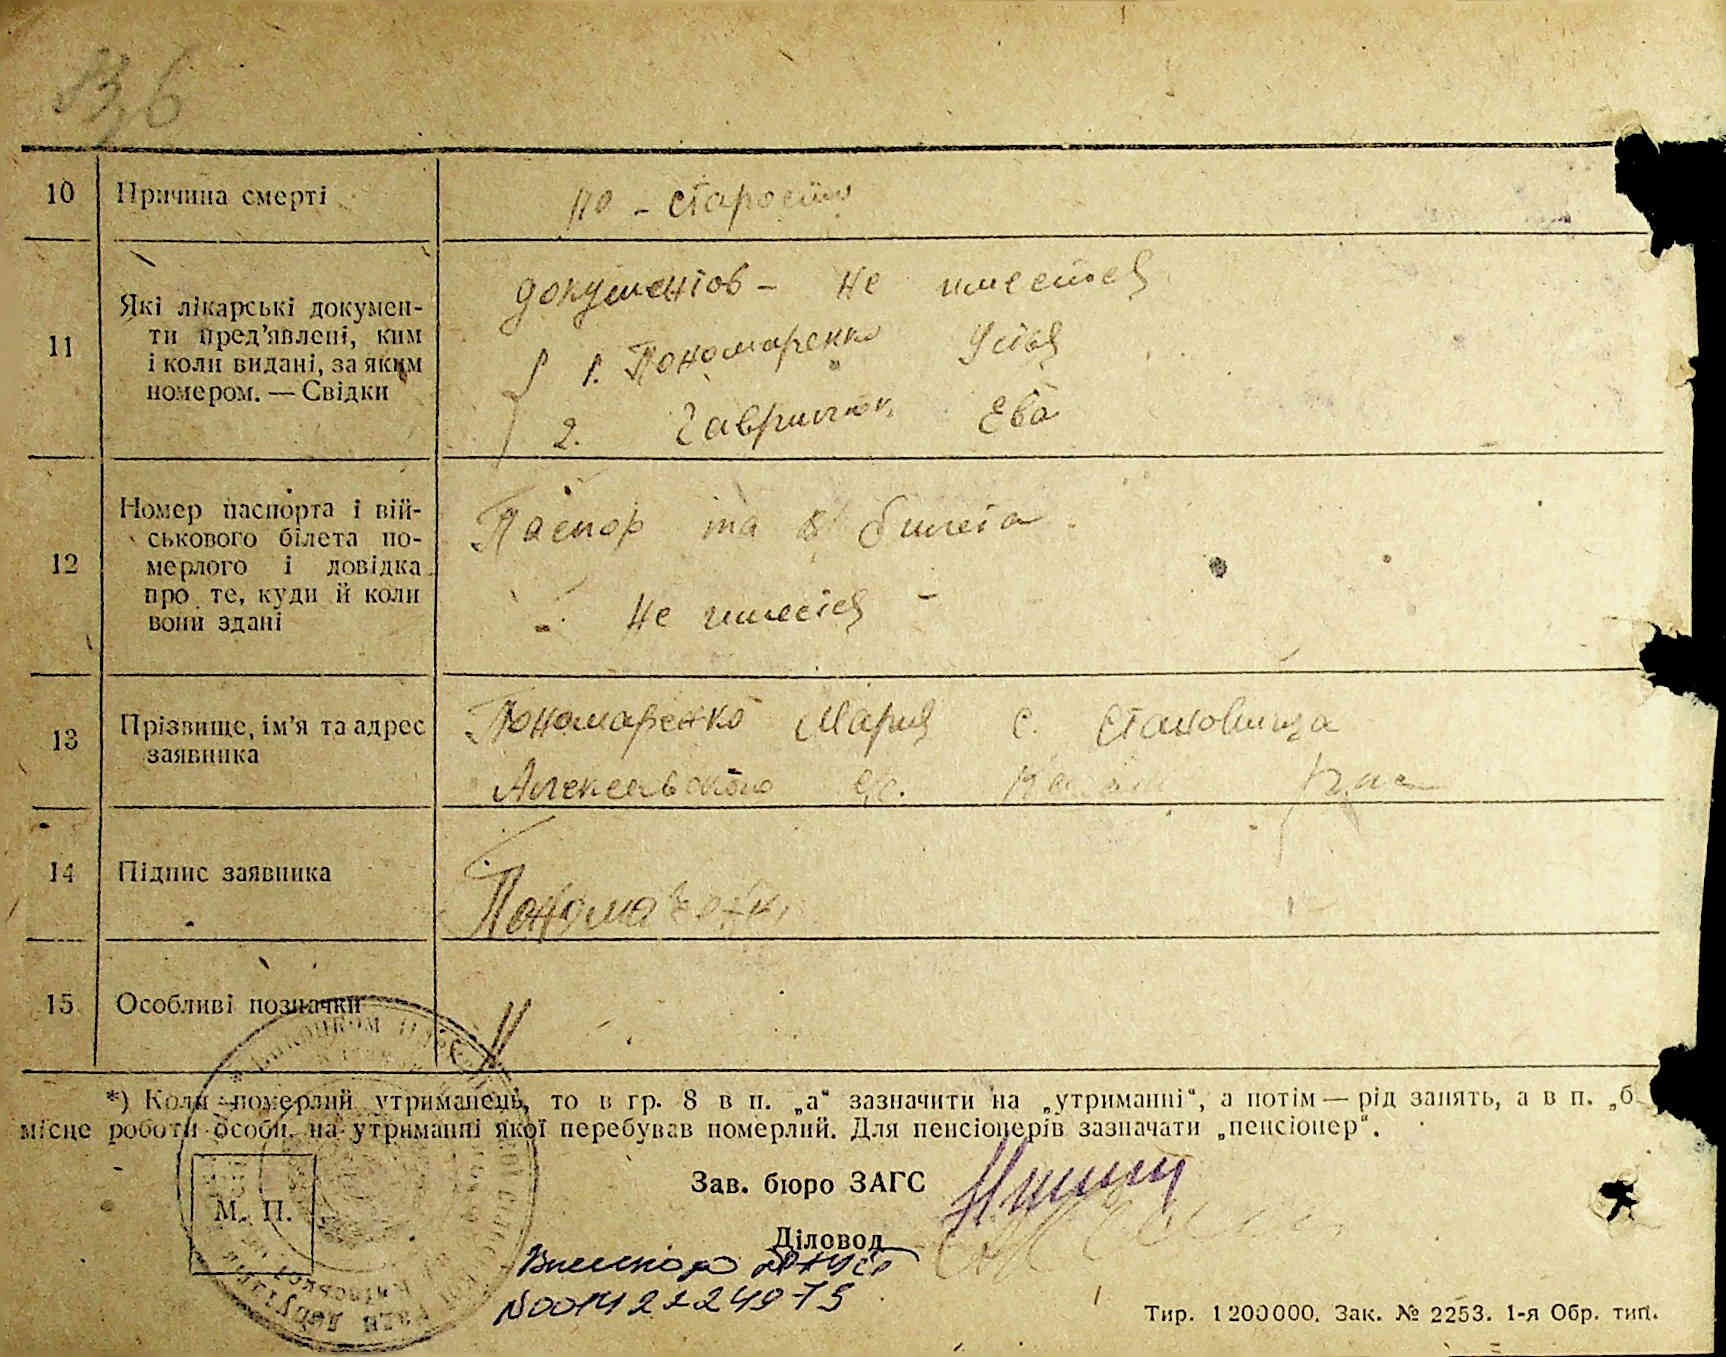 10 Причина смерті по - старости
11 Які лікарські докумен-
ти пред'явлені, ким
і коли видані, за яким
номером. — Свідки
документов - не имеется
1. Пономаренко Устья
2. Ева
12 Номер паспорта і вій-
ськового білета по-
мерлого і довідка
про те, куди й коли
вони здані
Паспор та в/ билета
не имеется -
13 Прізвище, ім'я та адрес
заявника
Пономаренко Мария с. Становища
14 Підпис заявника Пономаренк
15 Особливі позначки
*) Коли померлий утриманець, то в гр. 8 в п. „а“ зазначити на „утриманні“, а потім — рід занять, а в п. „б
місце роботи особи, на утриманні якої перебував померлий. Для пенсіонерів зазначати „пенсіонер“.
Зав. бюро ЗАГС
М. П.
Діловод
Тир. 1200000. Зак. № 2253. 1-я Обр. тип.